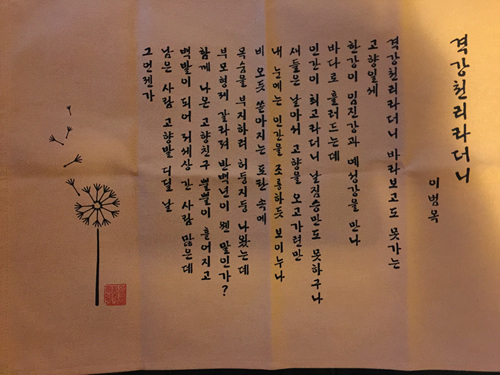 격강천리라더니
이병목
격강천리라더니 바라보고도 못가는
고향일세
한강이 임진강과 예성강을 만나
바다로 흘러드는데
인간이 최고라더니 날짐승만도 못하구나
새들은 날마다 고향을 오고가련만
내 눈에는 인간을 조롱하듯 보이누나
비 오듯 쏟아지는 포탄 속에
목숨을 부지하려 허둥지둥 나왔는데
부모형제 갈라져 반백년이 웬 말인가?
함께 나온 고향친구 뿔뿔이 흩어지고
백발이 되어 저세상 간 사람 많은데
남은 사람 고향발 디딜 날
그 언젠가